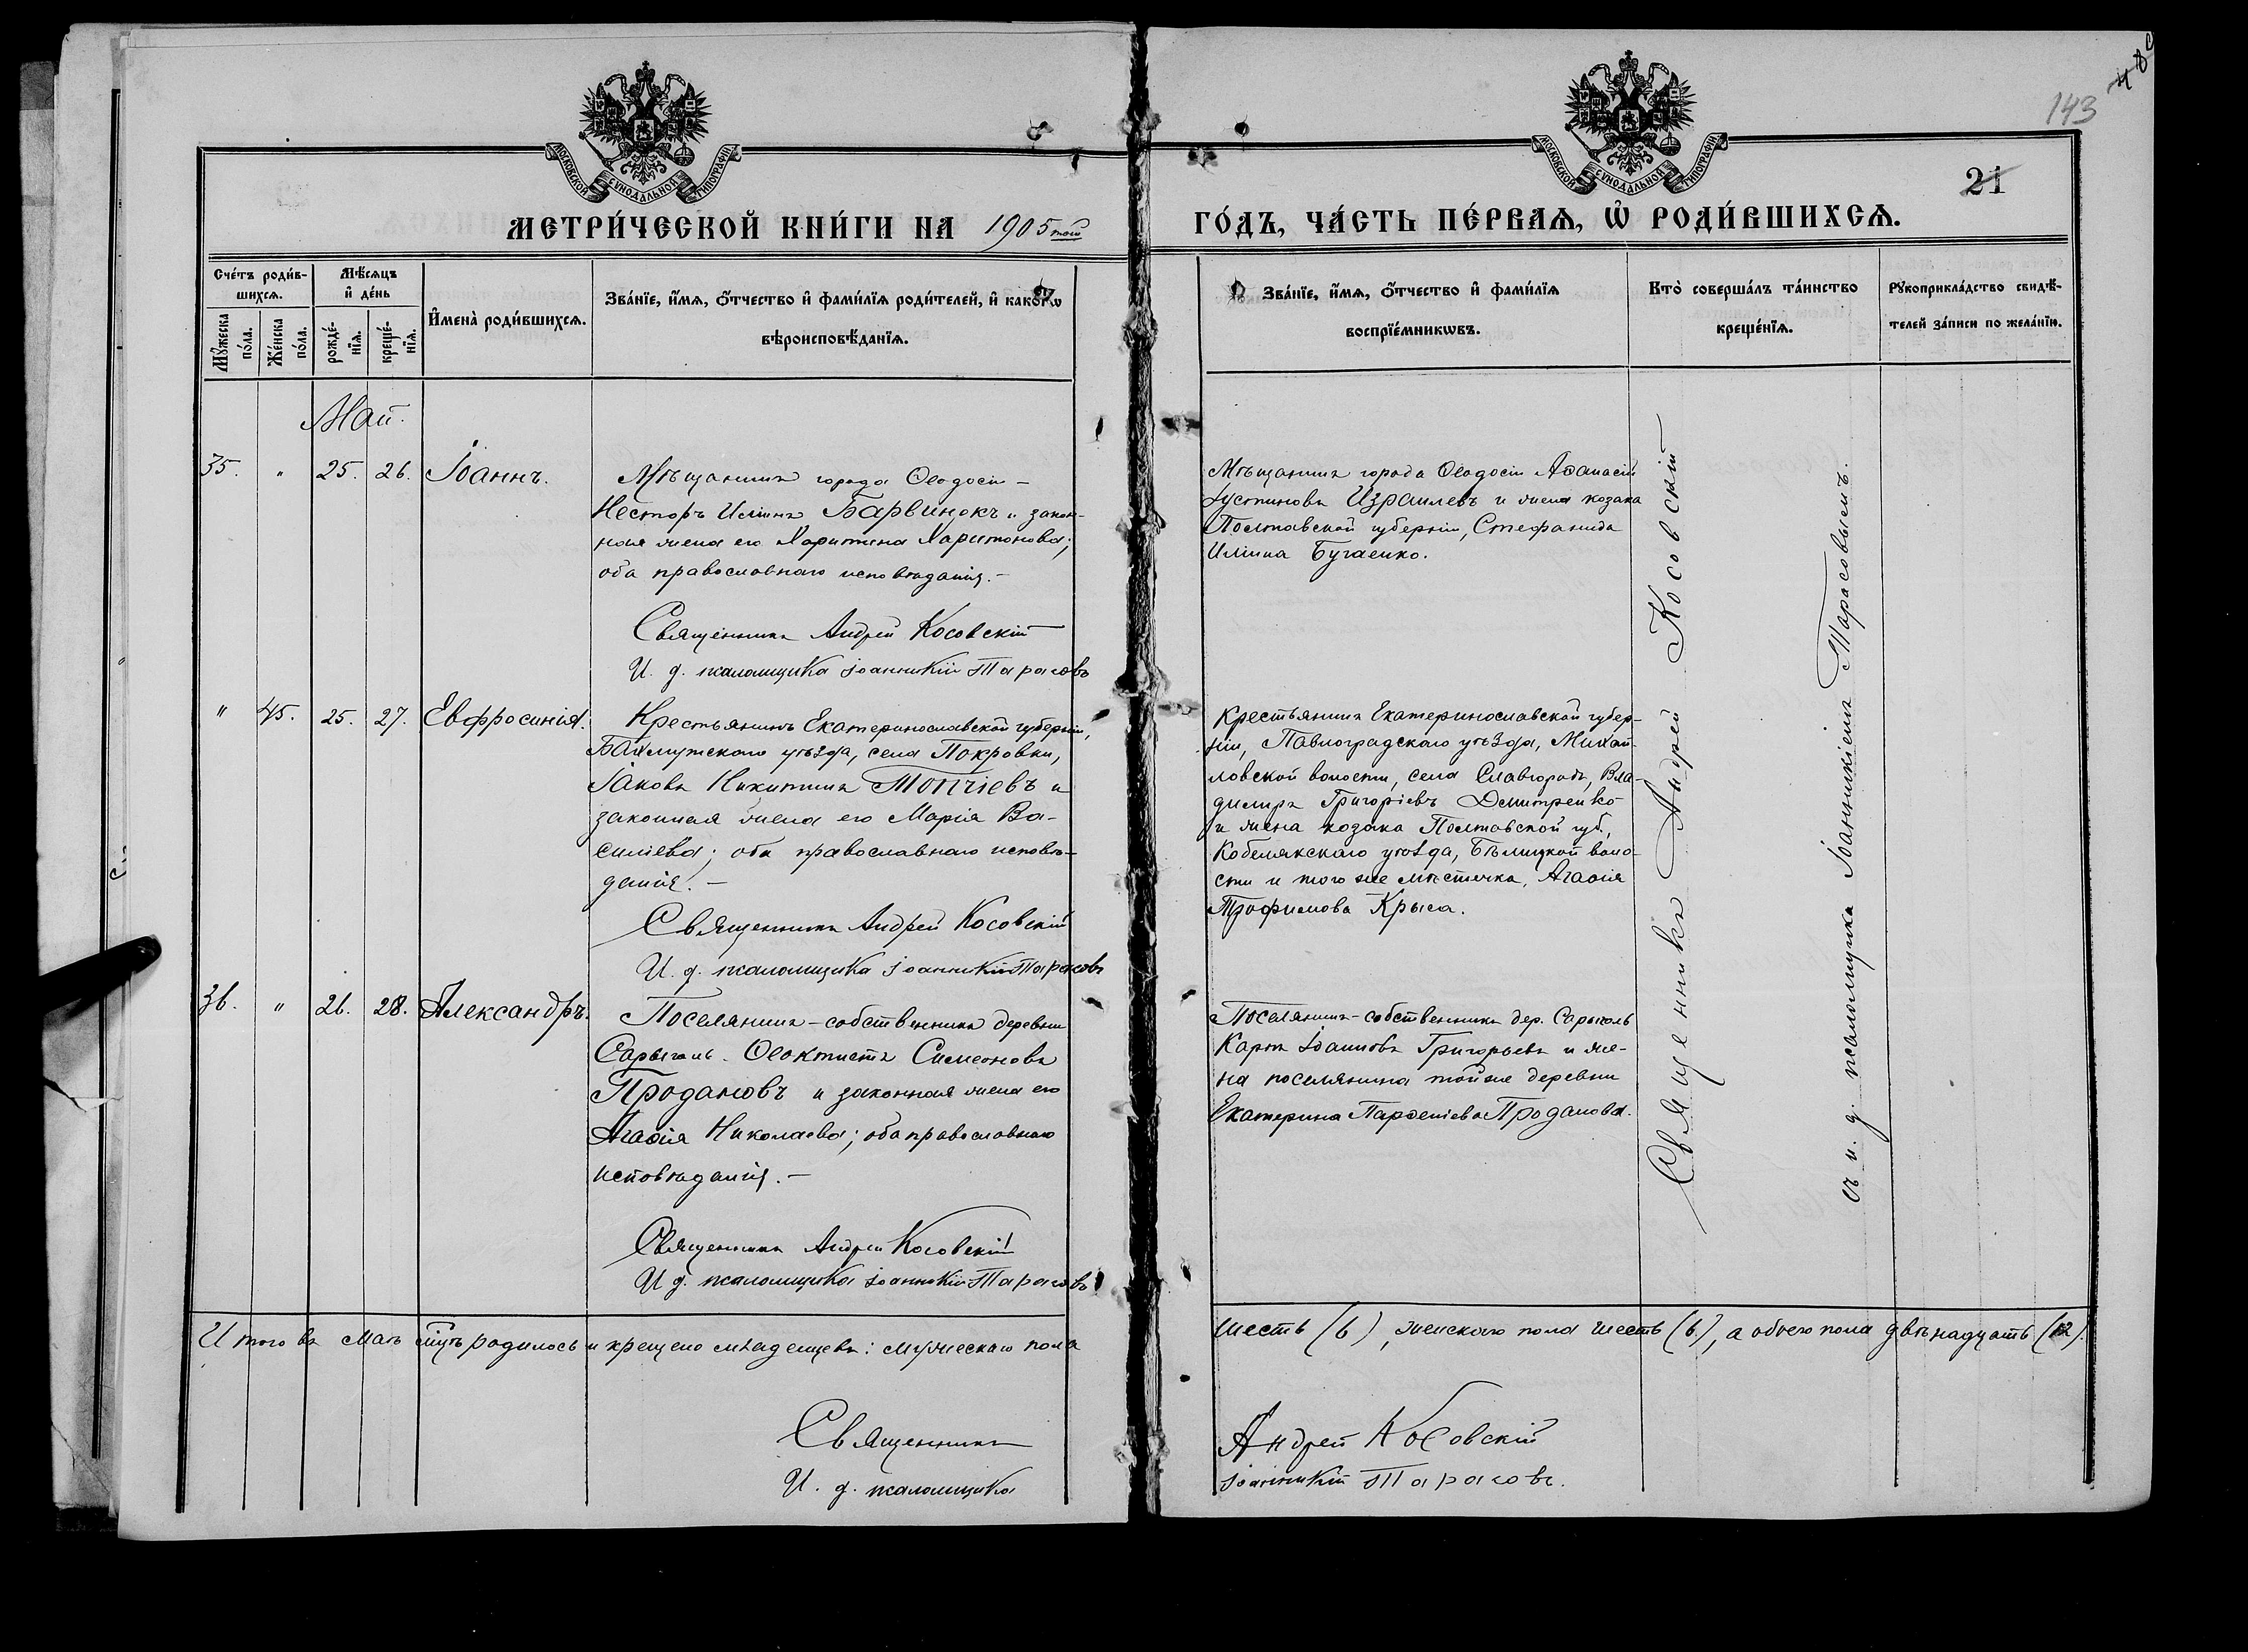 143
21
МОСКОВСКОЙ СѴНОДАЛЬНОЙ ТИПОГРАФІИ
МОСКОВСКОЙ СѴНОДАЛЬНОЙ ТИПОГРАФІИ
МЕТРИ́ЧЕСКОЙ КНИ́ГИ НА 1905 той
ГО́ДЪ, ЧА́СТЬ ПЕ́РВАѦ, Ѡ҆ РОДИ́ВШИХСѦ.
Сче́тъ роди́в-
шихсѧ.
Мꙋ́жеска по́ла.
Же́нска по́ла.
Мѣ́сѧцъ
и҆ де́нь
рожде́-
нїѧ.
креще́-
нїѧ.
И҆мена̀ роди́вшихсѧ.
Зва́нїе, и҆́мѧ, ѻ҆́тчество и҆ фами́лїѧ роди́телей, и҆ како́гѡ
вѣроисповѣ́данїѧ.
Зва́нїе, и҆́мѧ, ѻ҆́тчество и҆ фами́лїѧ
воспрїе́мникѡвъ.
Кто̀ соверша́лъ та́инство
креще́нїѧ.
Рꙋкоприкла́дство свидѣ́-
телей за́писи по жела́нїю.
Май.
35. " 25. 26. Іоаннъ.
Мѣщанинъ города Ѳеодосіи –
Несторъ Иліинъ Барвинокъ и закон-
ная жена его Харитина Харитонова;
оба православнаго исповѣданія. –
Священникъ Андрей Косовскій
И. д. псаломщика Іоанникій Тарасовъ
Мѣщанинъ города Ѳеодосіи Аѳанасій
Іустиновъ Израилевъ и жена козака
Полтавской губерніи, Стефанида
Иліина Бугаенко.
" 45. 25. 27. Евфросинія.
Крестьянинъ Екатеринославской губерніи,
Бахмутскаго уѣзда, села Покровки,
Іаковъ Никитинъ Топчіевъ и
законная жена его Марія Ва-
силіева; оба православнаго исповѣ-
данія. –
Священникъ Андрей Косовскій
И. д. псаломщика Іоанникій Тарасовъ
Крестьянинъ Екатеринославской губер-
ніи, Павлоградскаго уѣзда, Михай-
ловской волости, села Славгорода, Вла-
димиръ Григоріевъ Дмитренко
и жена козака Полтавской губ.,
Кобелякскаго уѣзда, Бѣлицкой воло-
сти и того же мѣстечка, Агаѳія
Трофимова Крыса.
36. " 26. 28. Александръ.
Поселянинъ-собственникъ деревни
Сарыголь Ѳеоктистъ Симеоновъ
Продановъ и законная жена его
Агаѳія Николаева; оба православнаго
исповѣданія. –
Священникъ Андрей Косовскій
И. д. псаломщика Іоанникій Тарасовъ
Поселянинъ-собственникъ дер. Сарыголь
Карпъ Іоанновъ Григорьевъ и же-
на поселянина той же деревни
Екатерина Парѳеніева Проданова.
Священникъ Андрей Косовскій
съ и. д. псаломщика Іоанникіемъ Тарасовымъ.
Итого въ маѣ м-цѣ родилось и крещено младенцевъ: мужескаго пола
шесть (6), женскаго пола шесть (6), а обоего пола двѣнадцать (12).
Священникъ
Андрей Косовскій
И. д. псаломщика
Іоанникій Тарасовъ.